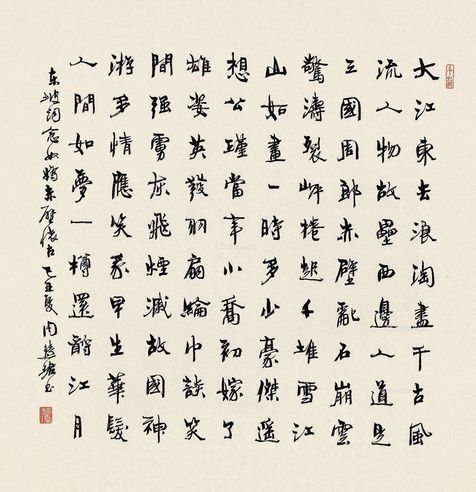 大江東去浪淘盡千古風
流人物故壘西邊人道是
三國周郎赤壁亂石崩雲
驚濤裂岸捲起千堆雪江
山如畫一時多少豪傑遥
想公瑾當年小喬初嫁了
雄姿英發羽扇綸巾談笑
間强虜灰飛煙滅故國神
游多情應笑我早生華髮
人間如夢一樽還酹江月
东坡词念奴嬌赤壁懷古乙丑夏周慧珺书